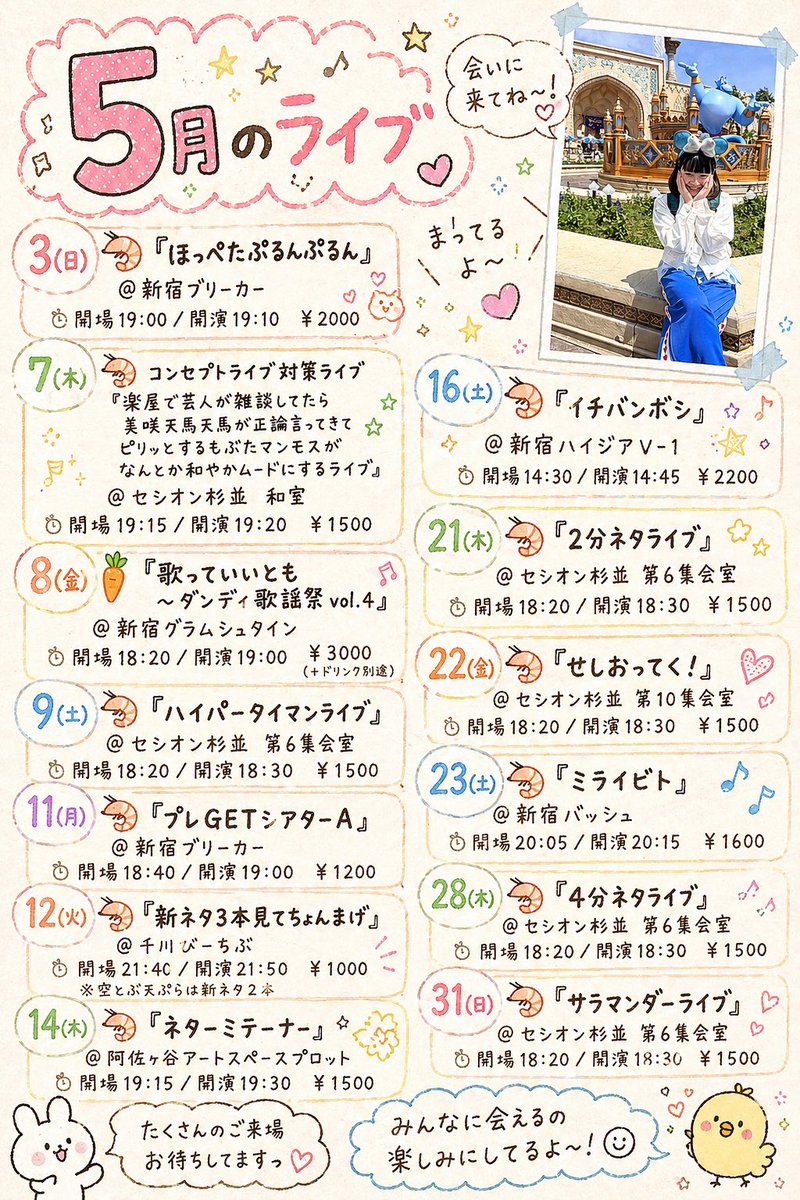 5月のライブ
会いに
来てね〜!
まってる
よ〜!
3(日)
『ほっぺたぷるんぷるん』
@新宿ブリーカー
開場19:00/開演19:10 ¥2000
7(木)
コンセプトライブ対策ライブ
『楽屋で芸人が雑談してたら
美咲天馬天馬が正論言ってきて
ピリッとするもぶたマンモスが
なんとか和やかムードにするライブ』
@セシオン杉並 和室
開場19:15/開演19:20 ¥1500
8(金)
『歌っていいとも
〜ダンディ歌謡祭vol.4』
@新宿グラムシュタイン
開場18:20/開演19:00 ¥3000
(+ドリンク別途)
9(土)
『ハイパータイマンライブ』
@セシオン杉並 第6集会室
開場18:20/開演18:30 ¥1500
11(月)
『プレGETシアターA』
@新宿ブリーカー
開場18:40/開演19:00 ¥1200
12(火)
『新ネタ3本見てちょんまげ』
@千川びーちぶ
開場21:40/開演21:50 ¥1000
※空とぶ天ぷらは新ネタ2本
14(木)
『ネターミテーナー』
@阿佐ヶ谷アートスペースプロット
開場19:15/開演19:30 ¥1500
16(土)
『イチバンボシ』
@新宿ハイジアV-1
開場14:30/開演14:45 ¥2200
21(木)
『2分ネタライブ』
@セシオン杉並 第6集会室
開場18:20/開演18:30 ¥1500
22(金)
『せしおってく!』
@セシオン杉並 第10集会室
開場18:20/開演18:30 ¥1500
23(土)
『ミライビト』
@新宿バッシュ
開場20:05/開演20:15 ¥1600
28(木)
『4分ネタライブ』
@セシオン杉並 第6集会室
開場18:20/開演18:30 ¥1500
31(日)
『サラマンダーライブ』
@セシオン杉並 第6集会室
開場18:20/開演18:30 ¥1500
たくさんのご来場
お待ちしてますっ
みんなに会えるの
楽しみにしてるよ〜!